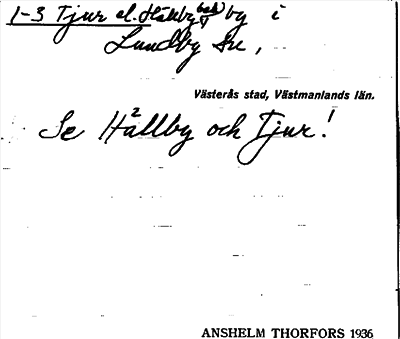 1-3 Tjur el. Hällby by i
Lundby sn,
Västerås stad, Västmanlands län.
Se Hällby och Tjur!
2
ANSHELM THORFORS 1936